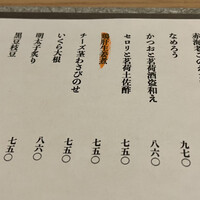 なめろう 九七〇
かつおと茗荷酒盗和え 八六〇
セロリと茗荷土佐酢 七五〇
鶏肝生姜煮 七五〇
チーズ茎わさびのせ 七五〇
いくら大根
明太子炙り 八六〇
黒豆枝豆 七五〇